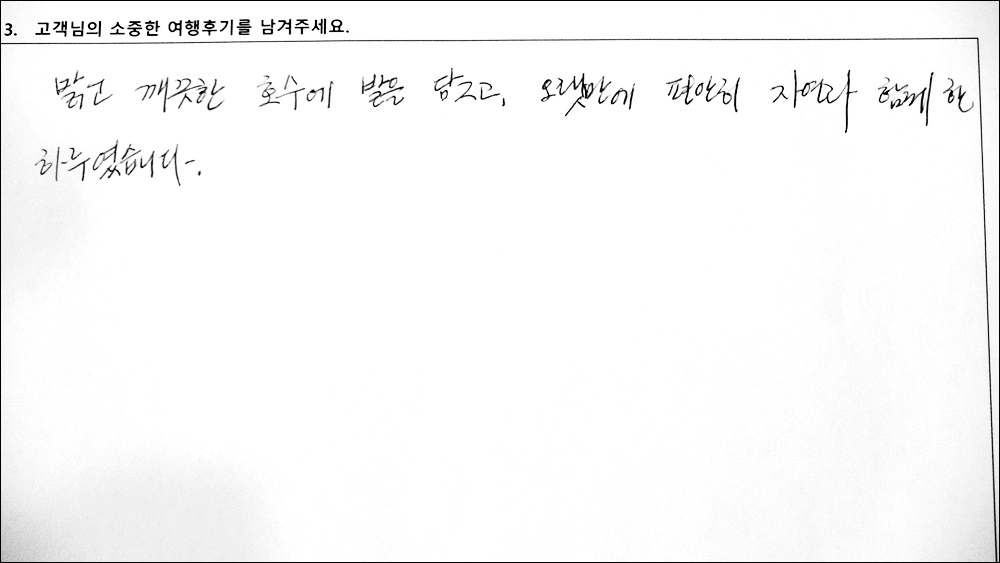 3. 고객님의 소중한 여행후기를 남겨주세요.
맑고 깨끗한 호수에 발을 담그고, 오랫만에 편안히 자연과 함께 한
하루였습니다.